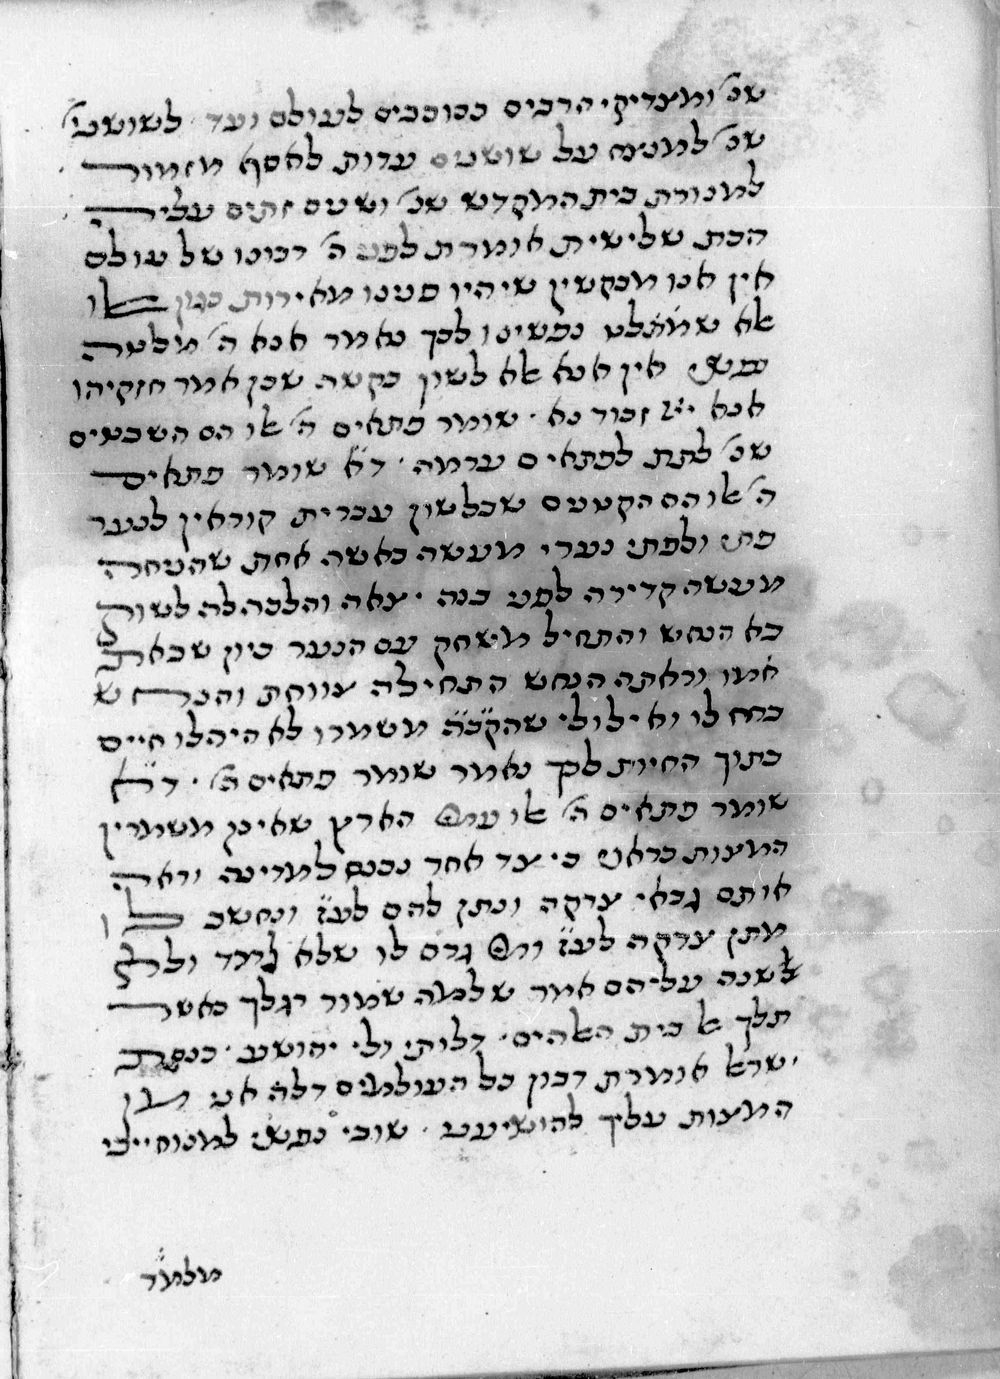 שנ' ומצדיקי הרבים ככוכבים לעולם ועד . לשושני'
שנ' למנצח על שושנים עדות לאסף מזמור
למנורת בית המקדש שנ' ושנים זתים עליה
הכת שלישית אומרת לפני ה' רבונו של עולם
אין אנו מבקשין שיהיו פנינו מאירות כגון אלו
אלא שתמלט נפשינו לכך נאמר אנא ה' מלטה
נפשי אין אנא אלא לשון בקשה שכן אמר חזקיהו
אנא ייי זכור נא . שומר פתאים ה' אלו הם השבטים
שנ' לתת לפתאים ערמה . ד"א שומר פתאים
ה' אלו הם הקטנים שבלשון ערבית קוראין לנער
פתי ולפתי נערי מעשה באשה אחת שהניחה
מעשה קדירה לפני בנה . יצאה והלכה לה לשוק
בא הנחש והתחיל משחק עם הנער כיון שבאת
אמו וראתה הנחש התחילה צווחת והנחש
ברח לו ואילולי שהק"בה משמרו לא היה לו חיים
בתוך החיות לכך נאמר שומר פתאים ה' . ד"א
שומר פתאים ה' אלו עמי הארץ שאינן משמרין
המצות כראוי כי צד אחד נכנס למדינה וראה
אותם גבאי צדקה ונתן להם לע"ז ונחשב אלו
מתן צדקה לע"ז ומי גרם לו שלא למד ולא
שנה עליהם אמר שלמה שמור רגלך כאשר
תלך אל בית האלהים . דלותי ולי יהושע . כנסת
ישראל אומרת רבון כל העולמים דלה אני מן
המצות עליך להושיעני . שובי נפשי למנוחייכי
מלמד